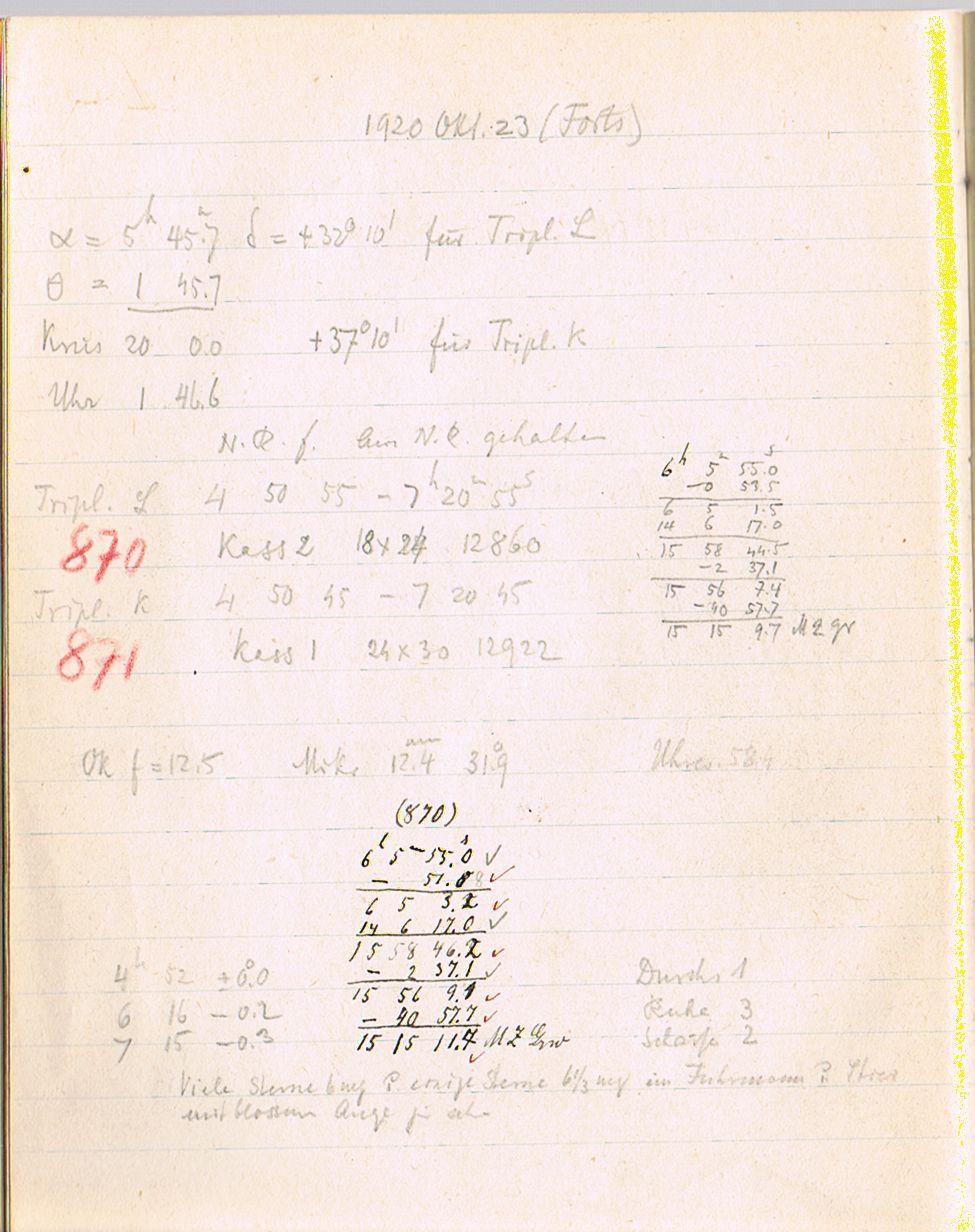 1920 Okt. 23 (Forts)
α = 5ʰ 45.ᵐ7 δ = +32° 10' für Tripl. L
θ = 1 45.7
Kreis 20 0.0 +37° 10' für Tripl. K
Uhr 1 46.6
N. R. f. Am N. R. gehalten
Tripl. L 4 50 55 – 7ʰ 20ᵐ 55ˢ
870 Kass 2 18×24 12860
Tripl. K 4 50 45 – 7 20 45
871 Kass 1 24×30 12922
6ʰ 5ᵐ 55.ˢ0
–0 53.5
6 5 1.5
14 6 17.0
15 58 44.5
–2 37.1
15 56 7.4
–40 57.7
15 15 9.7 M Z gr
Ok f = 12.5 Mikr 12.4ᵐᵐ 31.°9 58.4
(870)
6ʰ 5ᵐ 55.ˢ0 ✓
– 51.8 8 ✓
6 5 3.2 ✓
14 6 17.0 ✓
15 58 46.2 ✓
– 2 37.1 ✓
15 56 9.1 ✓
– 40 57.7 ✓
15 15 11.4 M Z Grw ✓
4ʰ 52 +0.°0 Durchs 1
6 16 – 0.2 Ruhe 3
7 15 – 0.3 Schärfe 2
Viele Sterne 6 mg einige Sterne 6 1/3 mg im Fuhrmann
mit blossem Auge zu sehen